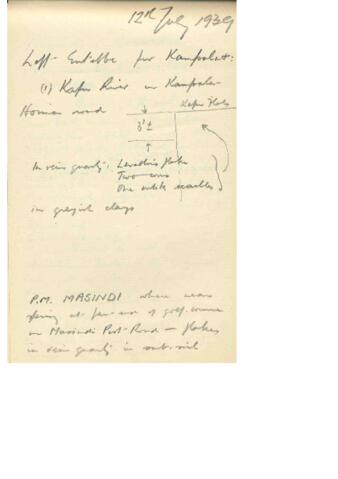 12th July 1939
Left Entebbe for Kampala:
(1) Kafu River on Kampala-
Hoima road
Kafu Flats
3' ±
In vein quartz: Levallois flake
Two cores
One with scratches
in greyish clays
P.M. MASINDI where near
spring at far end of golf course
on Masindi Port Road — flakes
in vein quartz in subsoil